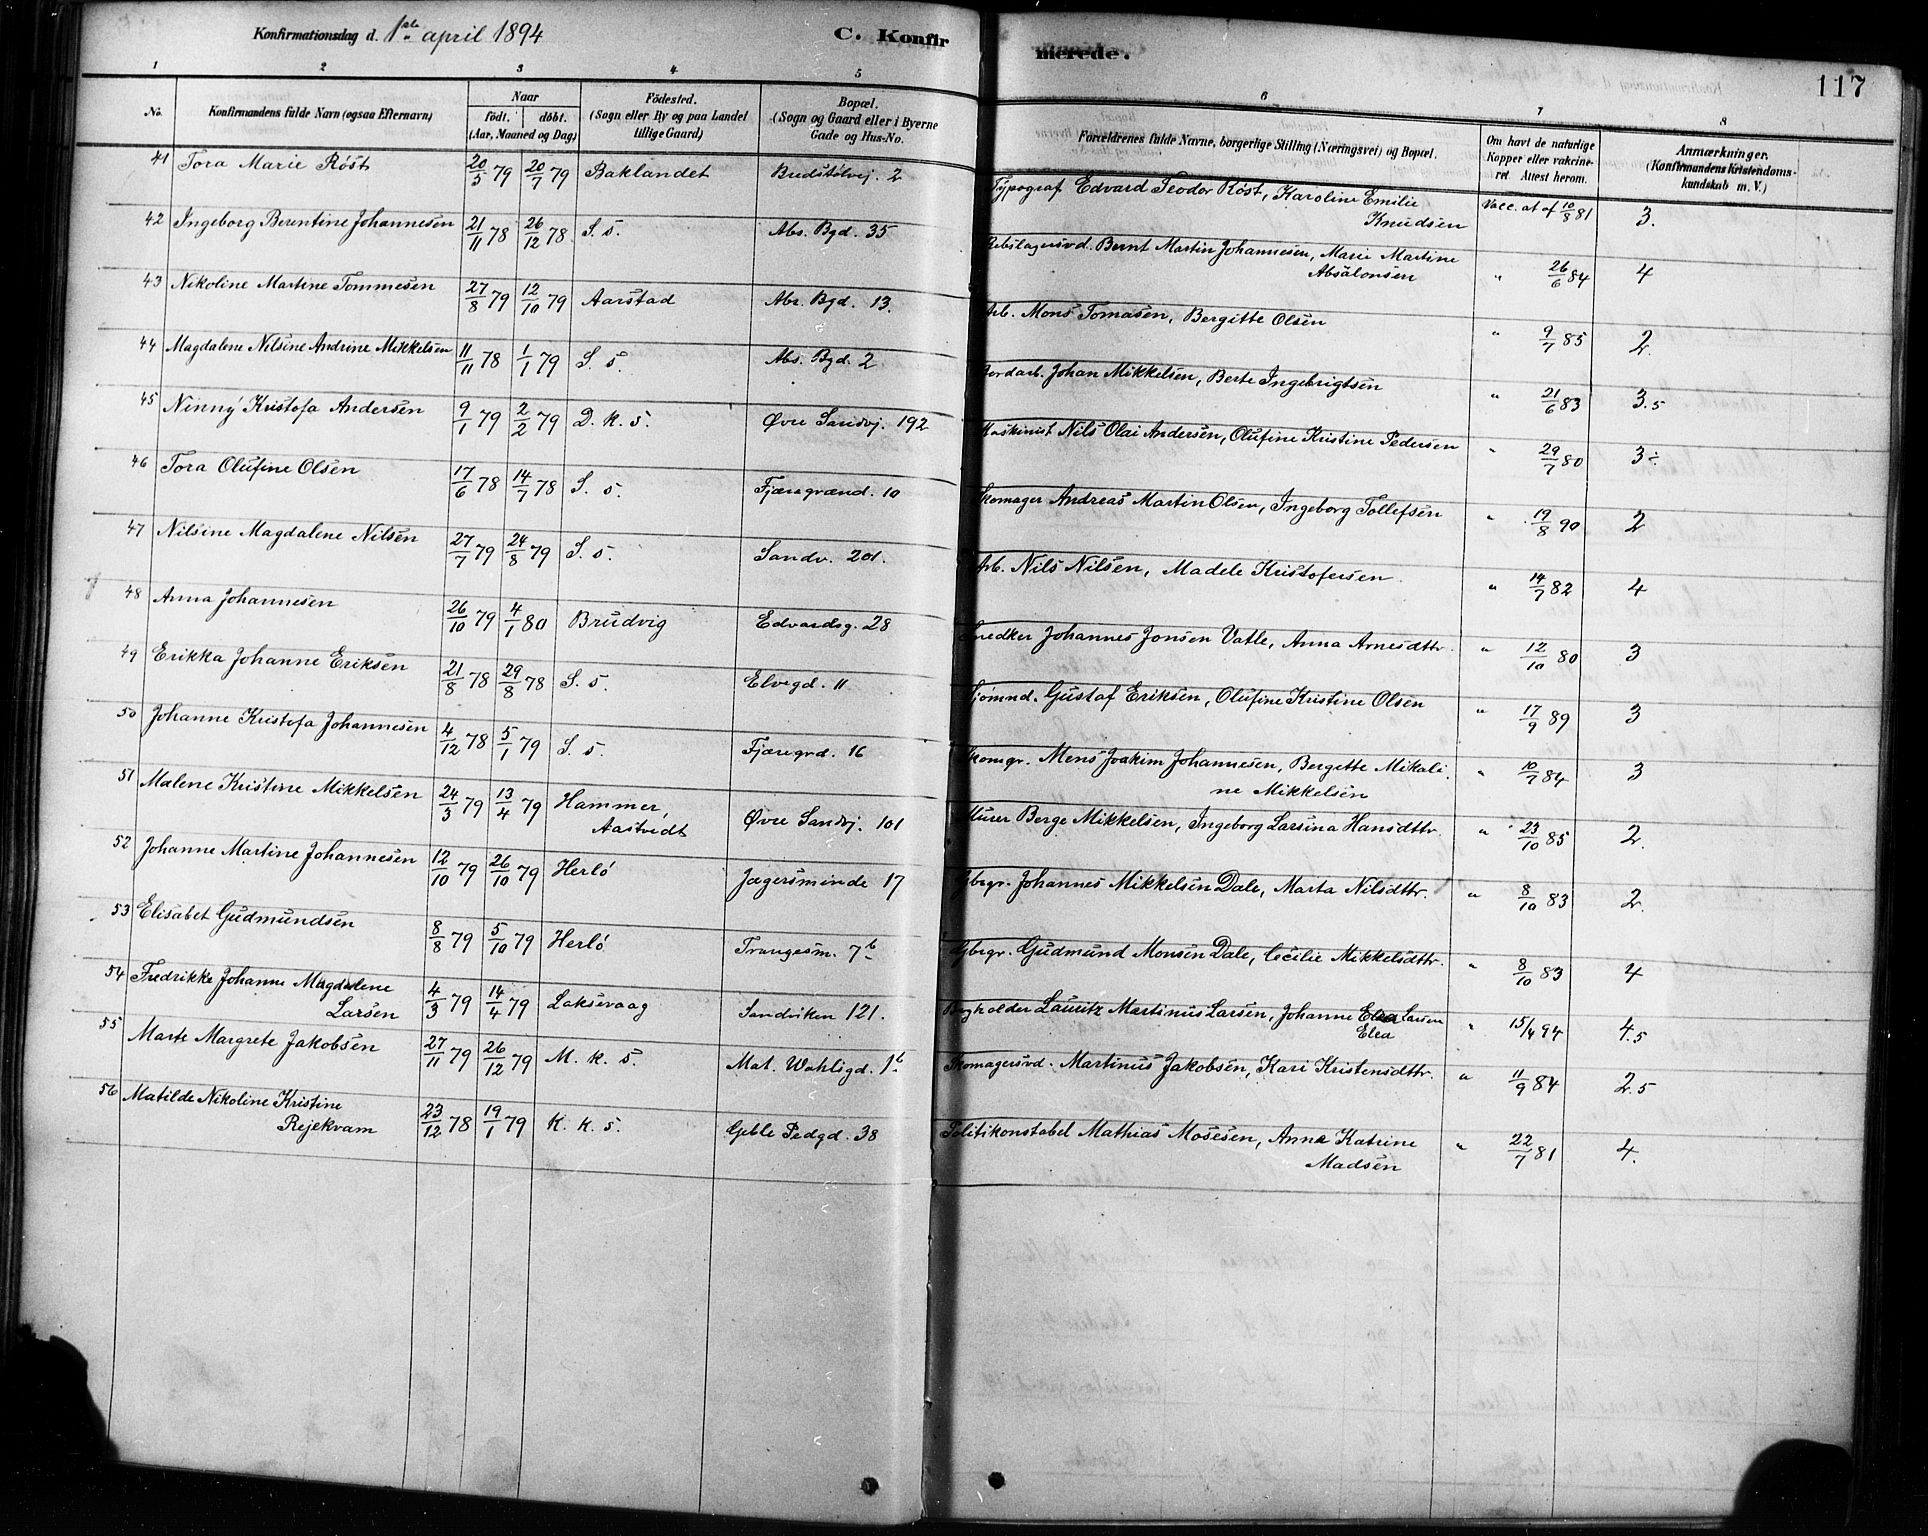 Konfirmationsdag d. 1ste april 1894
C. Konfirmerede.
117
1 2 3 4 5 6 7 8
No.
Konfirmandens fulde Navn (ogsaa Efternavn)
Naar
födt. döbt.
(Aar, Maaned og Dag)
Födested.
(Sogn eller By og paa Landet
tillige Gaard)
Bopæl.
(Sogn og Gaard eller i Byerne
Gade og Hus-No.
Forældrenes fulde Navne, borgerlige Stilling (Næringsvei) og Bopæl.
Om havt de naturlige
Kopper eller vakcine-
ret. Attest herom.
Anmærkninger.
(Konfirmandens Kristendoms-
kundskab m. V.)
41 Tora Marie Röst 20/5 79 20/7 79 Baklandet Bredstölvej. 2 Typograf Edvard Teodor Röst, Karoline Emilie Vacc. at af 10/8 81 3.
Knudsen
42 Ingeborg Berentine Johannesen 21/11 78 26/12 78 S. s. Abs. Bgd. 35 Rebslagersvd. Bernt Martin Johannesen, Marie Martine " 26/6 84 4
Absalonsen
43 Nikoline Martine Tommesen 27/8 79 12/10 79 Aarstad Abs. Bgd. 13. Arb. Mons Tomasen, Bergitte Olsen " 9/7 85 2.
44 Magdalene Nilsine Andrine Mikkelsen 11/11 78 1/1 79 S. s. Abs. Bgd. 2 Jordarb. Johan Mikkelsen, Berte Ingebrigtsen " 21/6 83 3.5
45 Ninny Kristofa Andersen 9/1 79 2/2 79 D. k. s. Øvre Sandvj. 192 Maskinist Nils Olai Andersen, Olufine Kristine Pedersen " 29/7 80 3÷
46 Tora Olufine Olsen 17/6 78 14/7 78 S. s. Fjæregrænd. 10 Skomager Andreas Martin Olsen, Ingeborg Tollefsen " 19/8 90 2
47 Nilsine Magdalene Nilsen 27/7 79 24/8 79 S. s. Sandv. 201. Arb. Nils Nilsen, Madele Kristofersen " 14/7 82 4
48 Anna Johannesen 26/10 79 4/1 80 Brudvig Edvardsg. 28 Snedker Johannes Jonsen Vatle, Anna Arnesdttr. " 12/10 80 3
49 Erikka Johanne Eriksen 21/8 78 29/8 78 S. s. Elvegd. 11 Sjömnd. Gustaf Eriksen, Olufine Kristine Olsen " 17/9 89 3
50 Johanne Kristofa Johannesen 4/12 78 5/1 79 S. s Fjæregrd. 16 Skomgr. Mens Joakim Johannesen, Bergitte Mikali " 10/7 84 3
ne Mikkelsen
51 Malene Kristine Mikkelsen 24/3 79 13/4 79 Hammer, Øvre Sandvj. 101 Murer Berge Mikkelsen, Ingeborg Larsina Hansdttr. " 23/10 85 2.
Aastvedt
52 Johanne Martine Johannesen 12/10 79 26/10 79 Herlö Jægersminde 17 Gbrgr. Johannes Mikkelsen Dale, Marta Nilsdttr. " 8/10 83 2.
53 Elisabet Gudmundsen 8/8 79 5/10 79 Herlö Trangesm. 7b Gbrgr. Gudmund Monsen Dale, Cecilie Mikkelsdttr. " 8/10 83 4
54 Fredrikke Johanne Magdalene 4/3 79 14/4 79 Laksevaag Sandviken 121. Lauritz Martinus Larsen, Johanne Elea Larsen " 15/4 94 4.5
Larsen Elea
55 Marte Margrete Jakobsen 27/11 79 26/12 79 M. k. s. Mat. Wahlsgd. 1b Skomagersvd. Martinus Jakobsen, Kari Kristensdttr. " 11/9 84 2.5
56 Matilde Nikoline Kristine 23/12 78 19/1 79 K. k. s. Geble Pedgd. 38 Politikonstabel Mathias Mosesen, Anna Katrine " 22/7 81 4.
Rejekvam Madsen